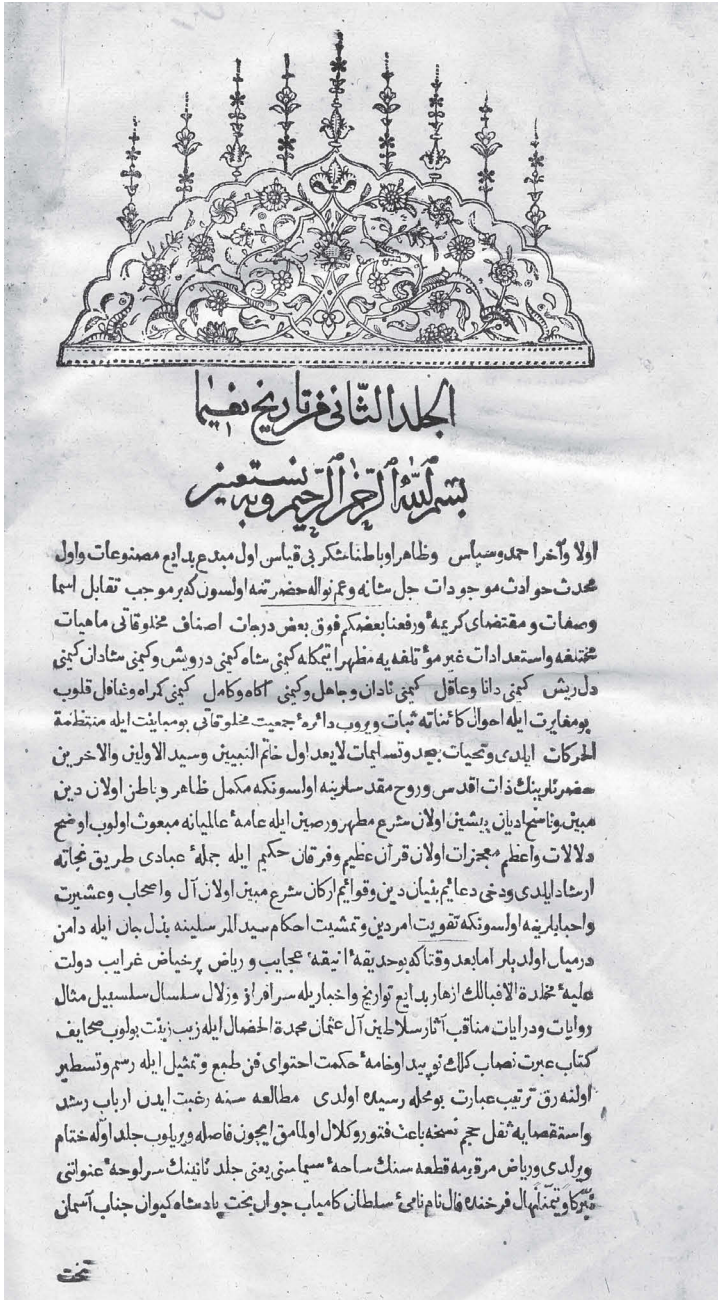 الجلد الثانی من تاریخ نعیما
بسم الله الرحمن الرحيم وبه نستعين
اولا وآخرا حمد وسپاس وظاهرا وباطنا شکر بی قیاس اول مبدع بدایع مصنوعات واول
محدث حوادث موجودات جل شانه وعم نواله حضرتنه اولسون که بر موجب تقابل اسما
وصفات ومقتضای کریمهٔ ورفعنا بعضکم فوق بعض درجات اصناف مخلوقاتی ماهیات
مختلفه واستعدادات غیر مؤتلفه یه مظهر ایتمکله کیمی شاه کیمی درویش وکیمی شادان کیمی
دل ریش کیمی دانا وعاقل کیمی نادان وجاهل وکیمی آکاه وکامل کیمی کمراه وغافل قلوب
بو مغایرت ایله احوال کائناته ثبات ویروب دائرهٔ جمعیت مخلوقاتی بو مباینت ایله منتظمة
الحرکات ایلدی وتحیات بیعد وتسلیمات لایعد اول خاتم النبیین وسید الاولین والاخرین
حضرتلرینك ذات اقدس وروح مقدسلرینه اولسونکه مکمل ظاهر وباطن اولان دین
مبین وناسخ ادیان پیشین اولان شرع مطهر ورصین ایله عامهٔ عالمیانه مبعوث اولوب اوضح
دلالات واعظم معجزات اولان قرآن عظیم وفرقان حکیم ایله جملهٔ عبادی طریق نجاته
ارشاد ایلدی ودخی دعایم بنیان دین وقوایم ارکان شرع مبین اولان آل واصحاب وعشیرت
واحبابلرینه اولسونکه تقویت امر دین وتمشیت احکام سید المرسلینه بذل جان ایله دامن
درمیان اولدیلر اما بعد وقتاکه بو حدیقهٔ انیقهٔ عجایب وریاض پرحیاض غرایب دولت
علیهٔ مخلدة الاقبالك ازهار بدایع تواریخ واخباریله سرافراز وزلال سلسال سلسبیل مثال
روایات ودرایات مناقب آثار سلاطین آل عثمان محمدة الخصال ایله زیب زینت بولوب صحایف
کتاب عبرت نصاب کلك نوپید اوخامهٔ حکمت احتوای فن طبع وتمثیل ایله رسم وتسطیر
اولنه رق ترتیب عبارت بو محله رسیده اولدی مطالعه سنه رغبت ایدن ارباب رشد
واستقصایه ثقل حجم نسخه باعث فتور وکلال اولمامق ایچون فاصله ویریلوب جلد اوله ختام
ویرلدی وریاض مرقومه قطعه سنك ساحهٔ سیماسنی یعنی جلد ثانینك سرلوحهٔ عنواننی
تبرکا وتیمنا نهال فرخنده فال نام نامیٔ سلطان کامیاب جوان بخت پادشاه کیوان جناب آسمان
تخت